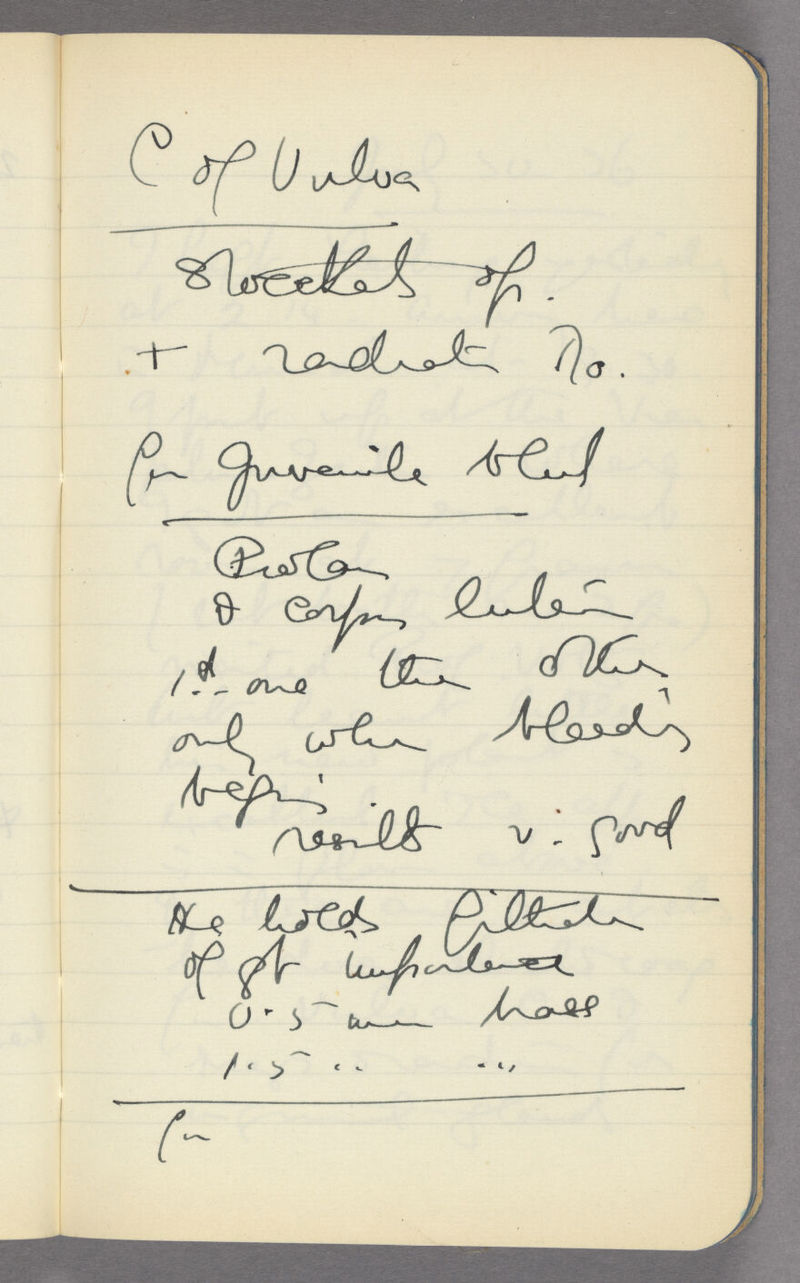 C of Vulva
op.
+ radiat Ro.
For Juvenile bleed
Prolan
& corpus lutein
1st one then other
only when bleeding
begins
results v. good
He holds filtrat
of gt importance
0.5 mm brass
1.5 " "
For